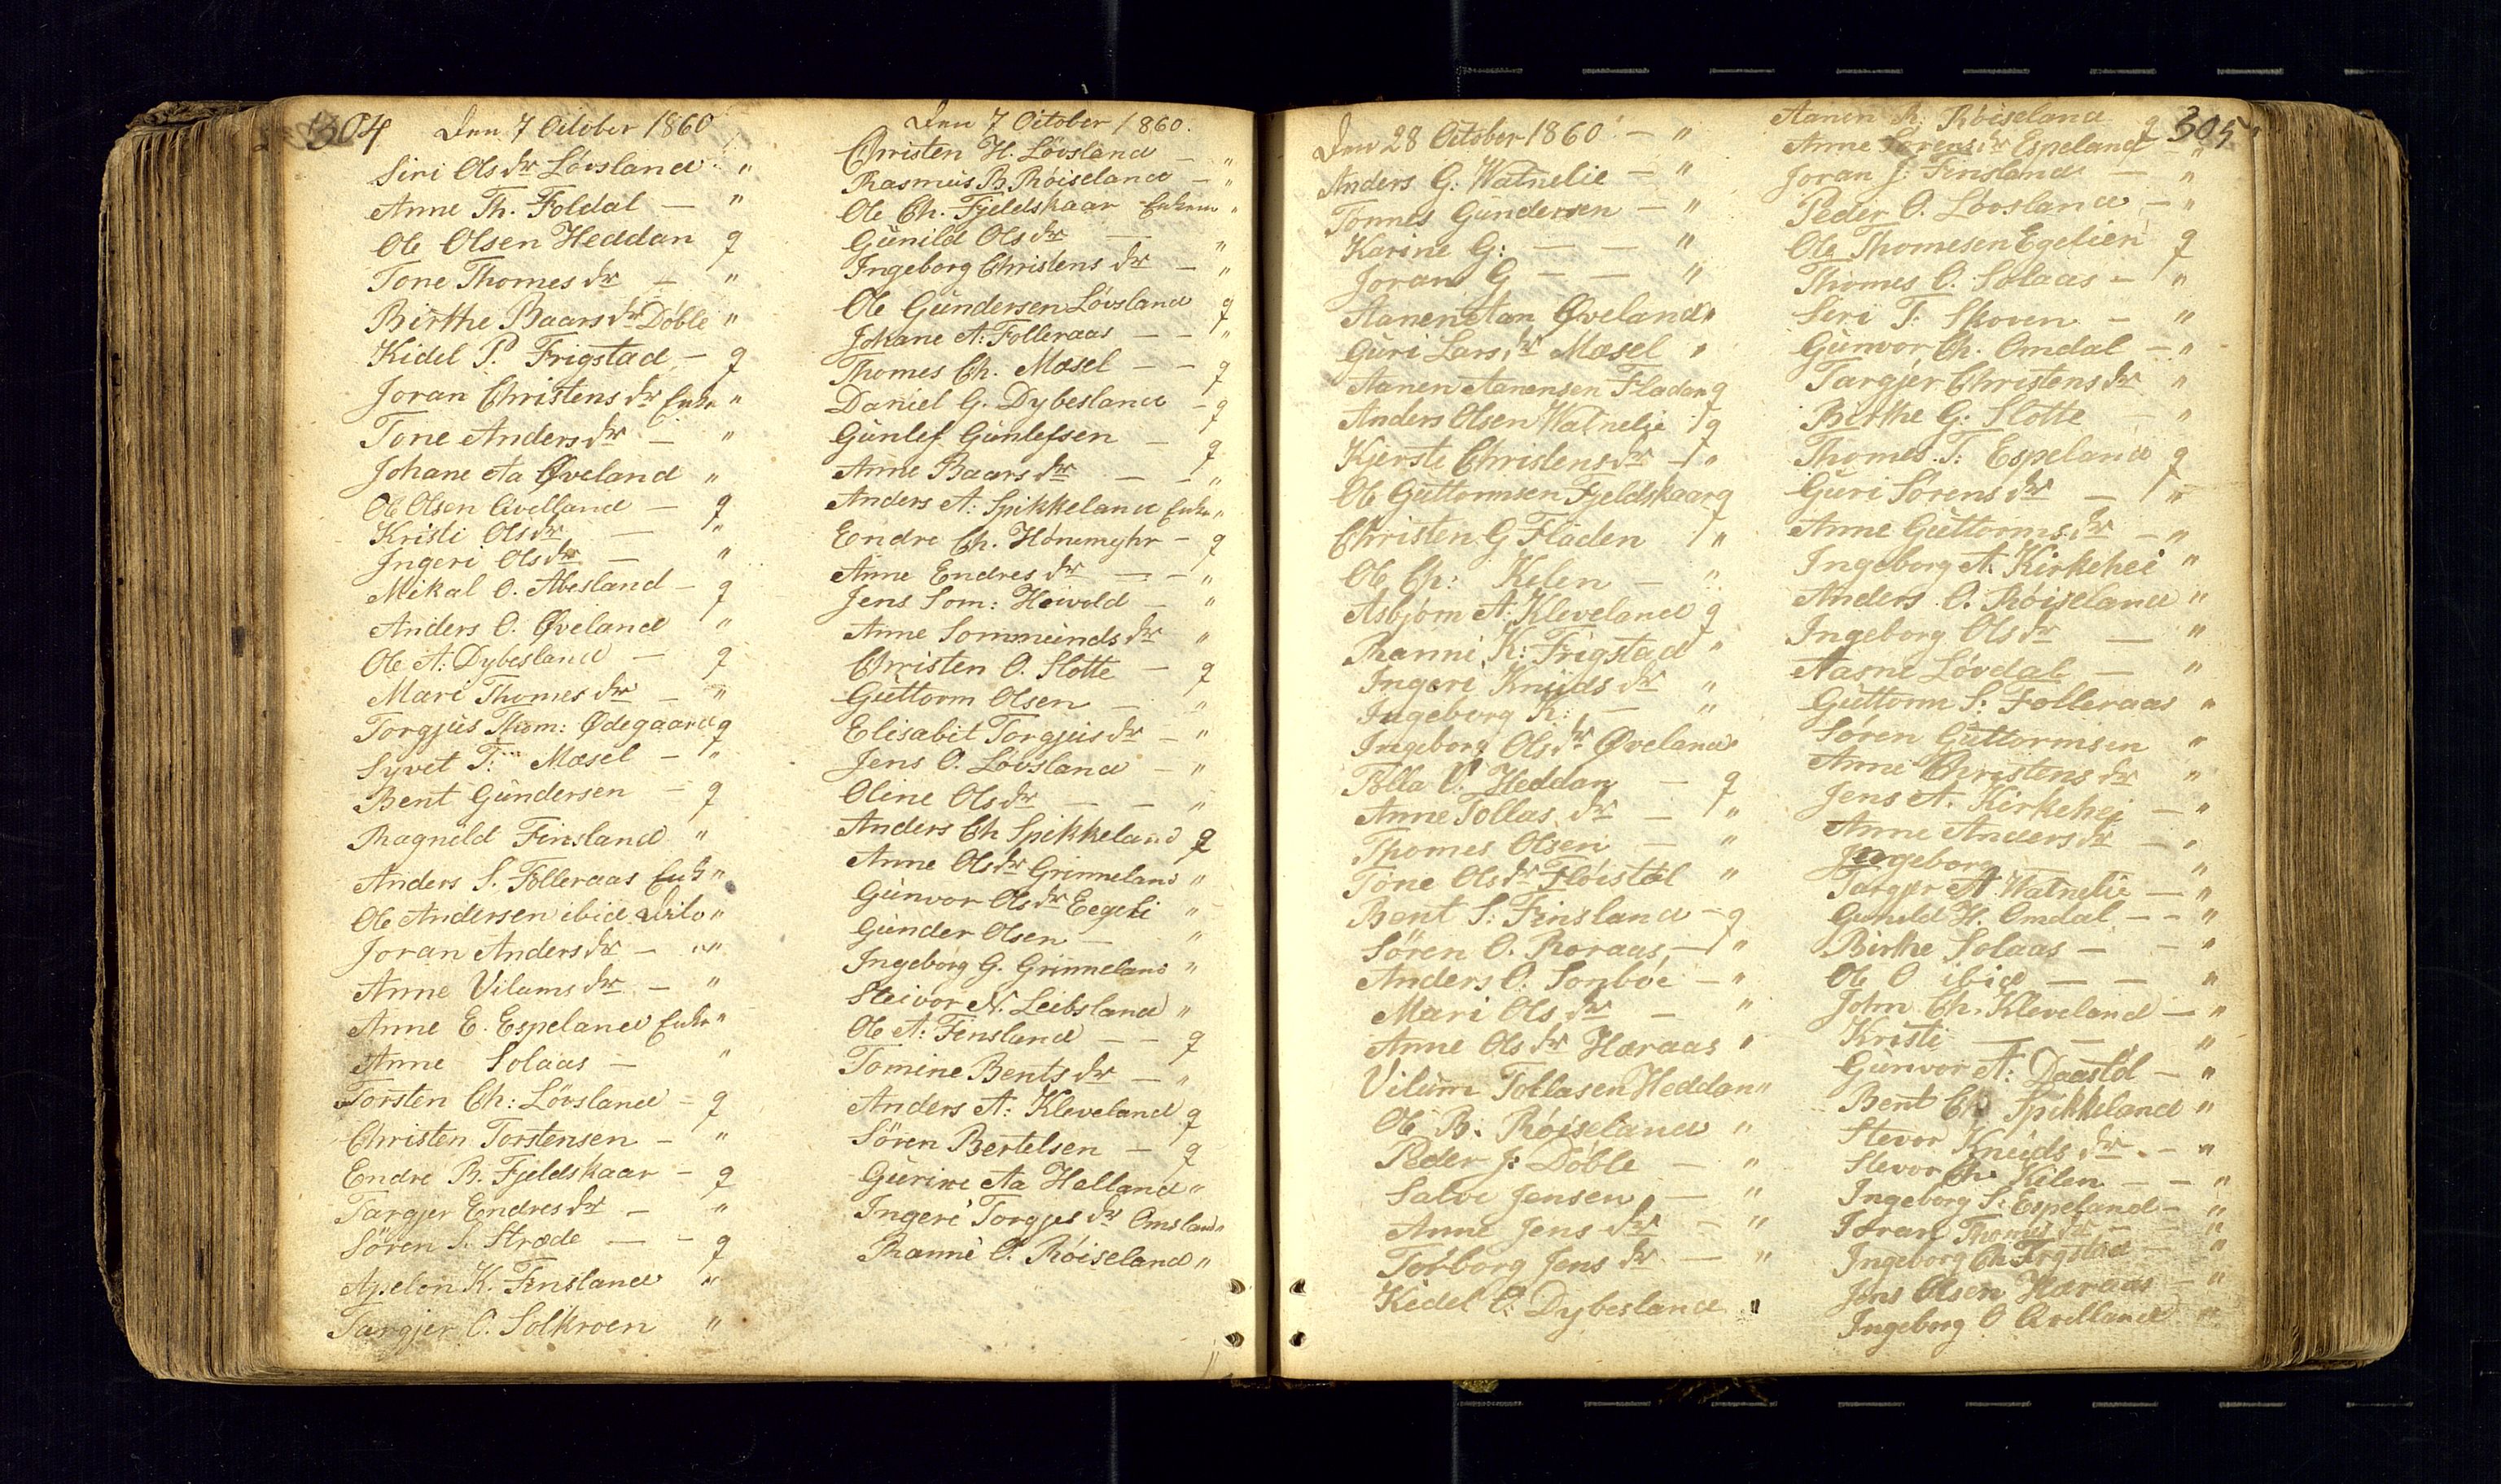 304 Den 7 October 1860
Siri Olsdr Lövsland "
Anne Th. Foldal — "
Ole Olsen Heddan g
Tone Thomesdr — "
Birthe Baarsdr Döble "
Kidel P. Frigstad — g
Joran Christensdr Enke "
Tone Andersdr — "
Johane Aa Øveland "
Ole Olsen Qvelland — g
Kristi Olsdr — "
Ingeri Olsdr — "
Mikal O. Abesland — g
Anders O. Øveland "
Ole A: Dybesland — g
Mari Thomesdr — "
Torgjus Thom: Ødegaard g
Syvet T: Mæsel — "
Bent Gündersen — g
Ragnild Finsland "
Anders S. Folleraas Enk "
Ole Andersen ibid Dito "
Joran Andersdr — "
Anne Vilumsdr — "
Anne E. Espeland Enke "
Anne Solaas — "
Torsten Ch: Lövsland — g
Christen Torstensen — "
Endre B. Fjeldskaar — g
Targjer Endresdr — "
Sören S. Stræde — — g
Apelon K. Finsland "
Targjer O. Solkroen "
Den 7 October 1860.
Christen H. Lövsland — "
Rasmus B. Röiseland — "
Ole Ch. Fjeldskaar "
Günild Olsdr — "
Ingeborg Christensdr — "
Ole Gündersen Lövsland g
Johane A: Folleraas — — "
Thomes Ch. Mæsel — — g
Daniel G. Dybesland — g
Günlef Günlefsen — g
Anne Baarsdr — — "
Anders A: Spikkeland Enke "
Endre Ch. Hönemyhr — g
Anne Endresdr — — "
Jens Som: Heivold — "
Anne Sommündsdr "
Christen O. Slotte — g
Güttorm Olsen — "
Elisabit Torgjüsdr — "
Jens O. Lövsland — "
Oline Olsdr — — "
Anders Ch Spikkeland g
Anne Olsdr Grimmeland "
Günvor Olsdr Eegeli "
Günder Olsen — "
Ingeborg G. Grimmeland "
Steivor N. Leibsland "
Ole A: Finsland — — g
Tomine Bentsdr — "
Anders A: Kleveland g
Sören Bertelsen — g
Gürine Aa Helland "
Ingeri Torgjesdr Omsland "
Ranne O. Röiseland "
Den 28 October 1860 — "
Anders G. Watnelie — "
Tönnes Gündersen — "
Karine G: — — "
Joran G — — "
Aanen Aan Øveland "
Güri Larsdr Mæsel "
Aanen Aanensen Fladen g
Anders Olsen Watnelie g
Kjersti Christensdr — "
Ole Güttormsen Fjeldskaar g
Christen G Fladen "
Ole Ch: Kilen — "
Asbjörn A: Kleveland g
Ranni K: Frigstad "
Ingeri Knüdsdr "
Ingeborg K: — "
Ingeborg Olsdr Øveland "
Tolla V. Heddan — g
Anne Tollasdr — "
Thomes Olsen — "
Tone Olsdr Flöistöl "
Bent S: Finsland — g
Sören O. Roraas — "
Anders O. Sonböe — "
Mari Olsdr — "
Anne Olsdr Haraas "
Vilum Tollasen Heddan "
Ole B. Röiseland "
Peder J: Döble — "
Salve Jensen — "
Anne Jensdr — "
Torborg Jensdr — "
Kidel O: Dybesland "
305
Aanen R. Röiseland g
Anne Sörensdr Espeland — "
Joran J: Finsland — "
Peder O. Lövsland — "
Ole Thomesen Egelien g
Thomes O. Solaas — "
Siri T: Skoven — "
Günvor Ch. Omdal — "
Targjer Christensdr "
Birthe G: Slotte — "
Thomes T: Espeland g
Güri Sörensdr — "
Anne Güttormsdr — "
Ingeborg A. Kirkehei "
Anders O. Röiseland "
Ingeborg Olsdr — "
Aasne Lövdal — "
Güttorm S: Folleraas "
Sören Güttormsen "
Anne Christensdr "
Jens A. Kirkehei — "
Anne Andersdr — "
Ingeborg — "
Targjer A Watnelie — "
Gunild H. Omdal — — "
Birthe Solaas — — "
Ole O ibid — — "
John Ch. Kleveland — "
Kristi — — "
Günvor A: Daastöl — "
Bent Ch Spikkeland "
Stevor Knüdsdr — "
Stevor Ch. Kilen — — "
Ingeborg S: Espeland — "
Joran Thomesdr — "
Ingeborg Ch Frigstad — "
Jens Olsen Haraas — "
Ingeborg O Qvelland "